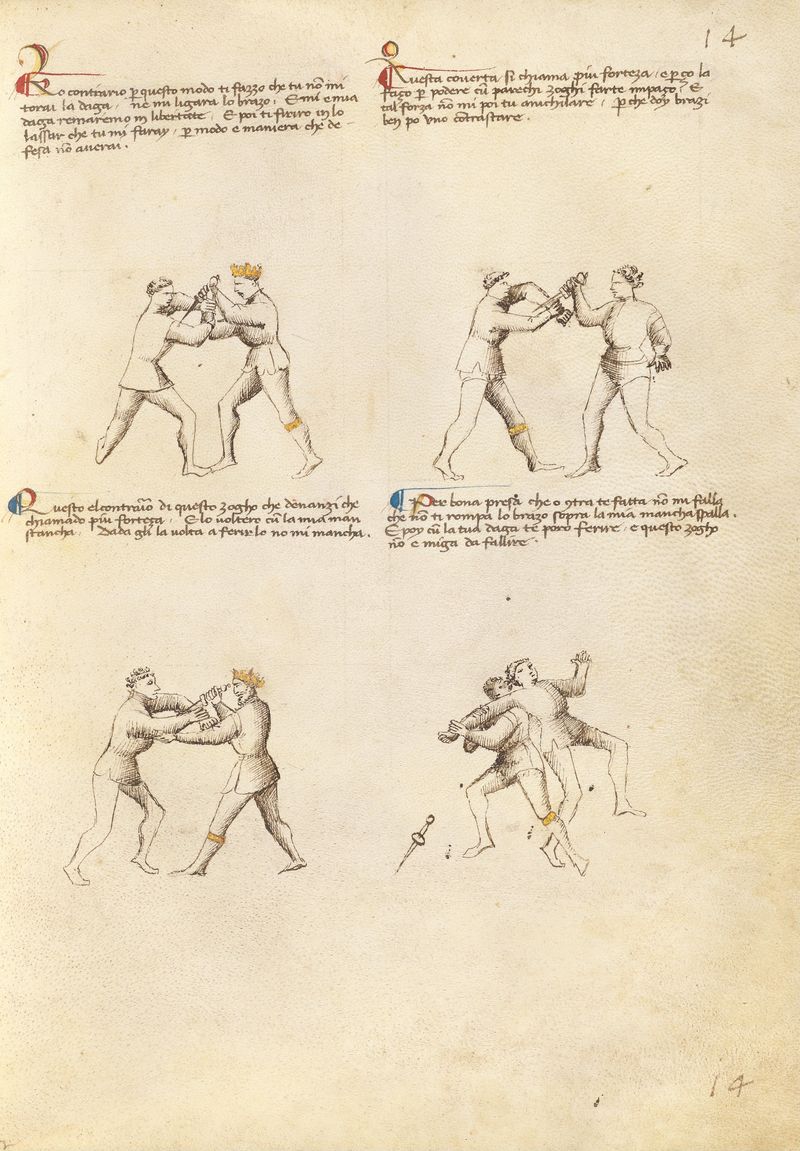 14
Lo contrario per questo modo ti fazzo che tu nō mi
torai la daga, ne mi ligara lo brazo, E mi e mia
daga remaremo in libertate, E poi ti feriro in lo
lassar che tu mi faray, per modo e maniera che de-
fesa nō averai.
Questa coverta si chiama piu forteza, e per ço la
faço per podere cū parechi zoghi farte impaço, E
tal forza nō mi poi tu anichilare, per che doy brazi
ben po uno cōtrastare.
Questo el contrario di questo zogho che denanzi che
chiamado piu forteza, E lo voltero cū la mia man
stancha, Dada gli la volta a ferirlo no mi mancha.
Per bona presa che o contra te fatta nō mi falla
che nō ti rompa lo brazo sopra la mia mancha spalla.
E poy cū la tua daga te porò ferire, e questo zogho
nō e miga da fallire.
14